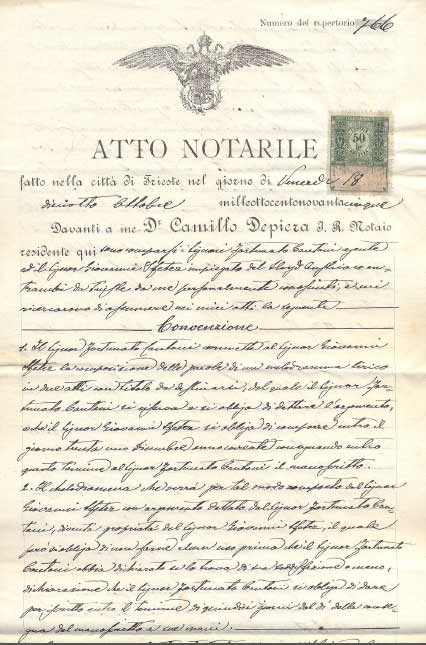 Numero del repertorio 766
50
ATTO NOTARILE
fatto nella città di Trieste nel giorno di Venerdì 18
diciotto Ottobre millottocentonovantacinque
Davanti a me Dr Camillo Depiera I. R. Notaio
residente qui sono comparsi i Signori Fortunato Cantoni agente
ed il Signor Giovanni impiegato del Lloyd Austriaco en-
trambi di Trieste da me personalmente conosciuti, e mi
ricercarono di assumere nei miei atti la seguente
Convenzione
1. Il Signor Fortunato Cantoni commette al Signor Giovanni
la composizione delle parole di un melodramma lirico
in due atti con titolo da destinarsi, del quale il Signor For-
tunato Cantoni si riserva e si obbliga di dettare l'argomento,
ed il Signor Giovanni si obbliga di comporre entro il
giorno trenta uno Dicembre anno corrente consegnando entro
questo termine al Signor Fortunato Cantoni il manoscritto.
2. Il Melodramma che verrà per tal modo composto dal Signor
Giovanni su argomento dettato dal Signor Fortunato Can-
toni, diventa proprietà del Signor Giovanni il quale
però si obbliga di non farne alcun uso prima che il Signor Fortunato
Cantoni abbia dichiarato se lo trova di sua soddisfazione o meno,
dichiarazione che il Signor Fortunato Cantoni si obbliga di dare
per iscritto entro il termine di quindici giorni dal dì della conse-
gna del manoscritto